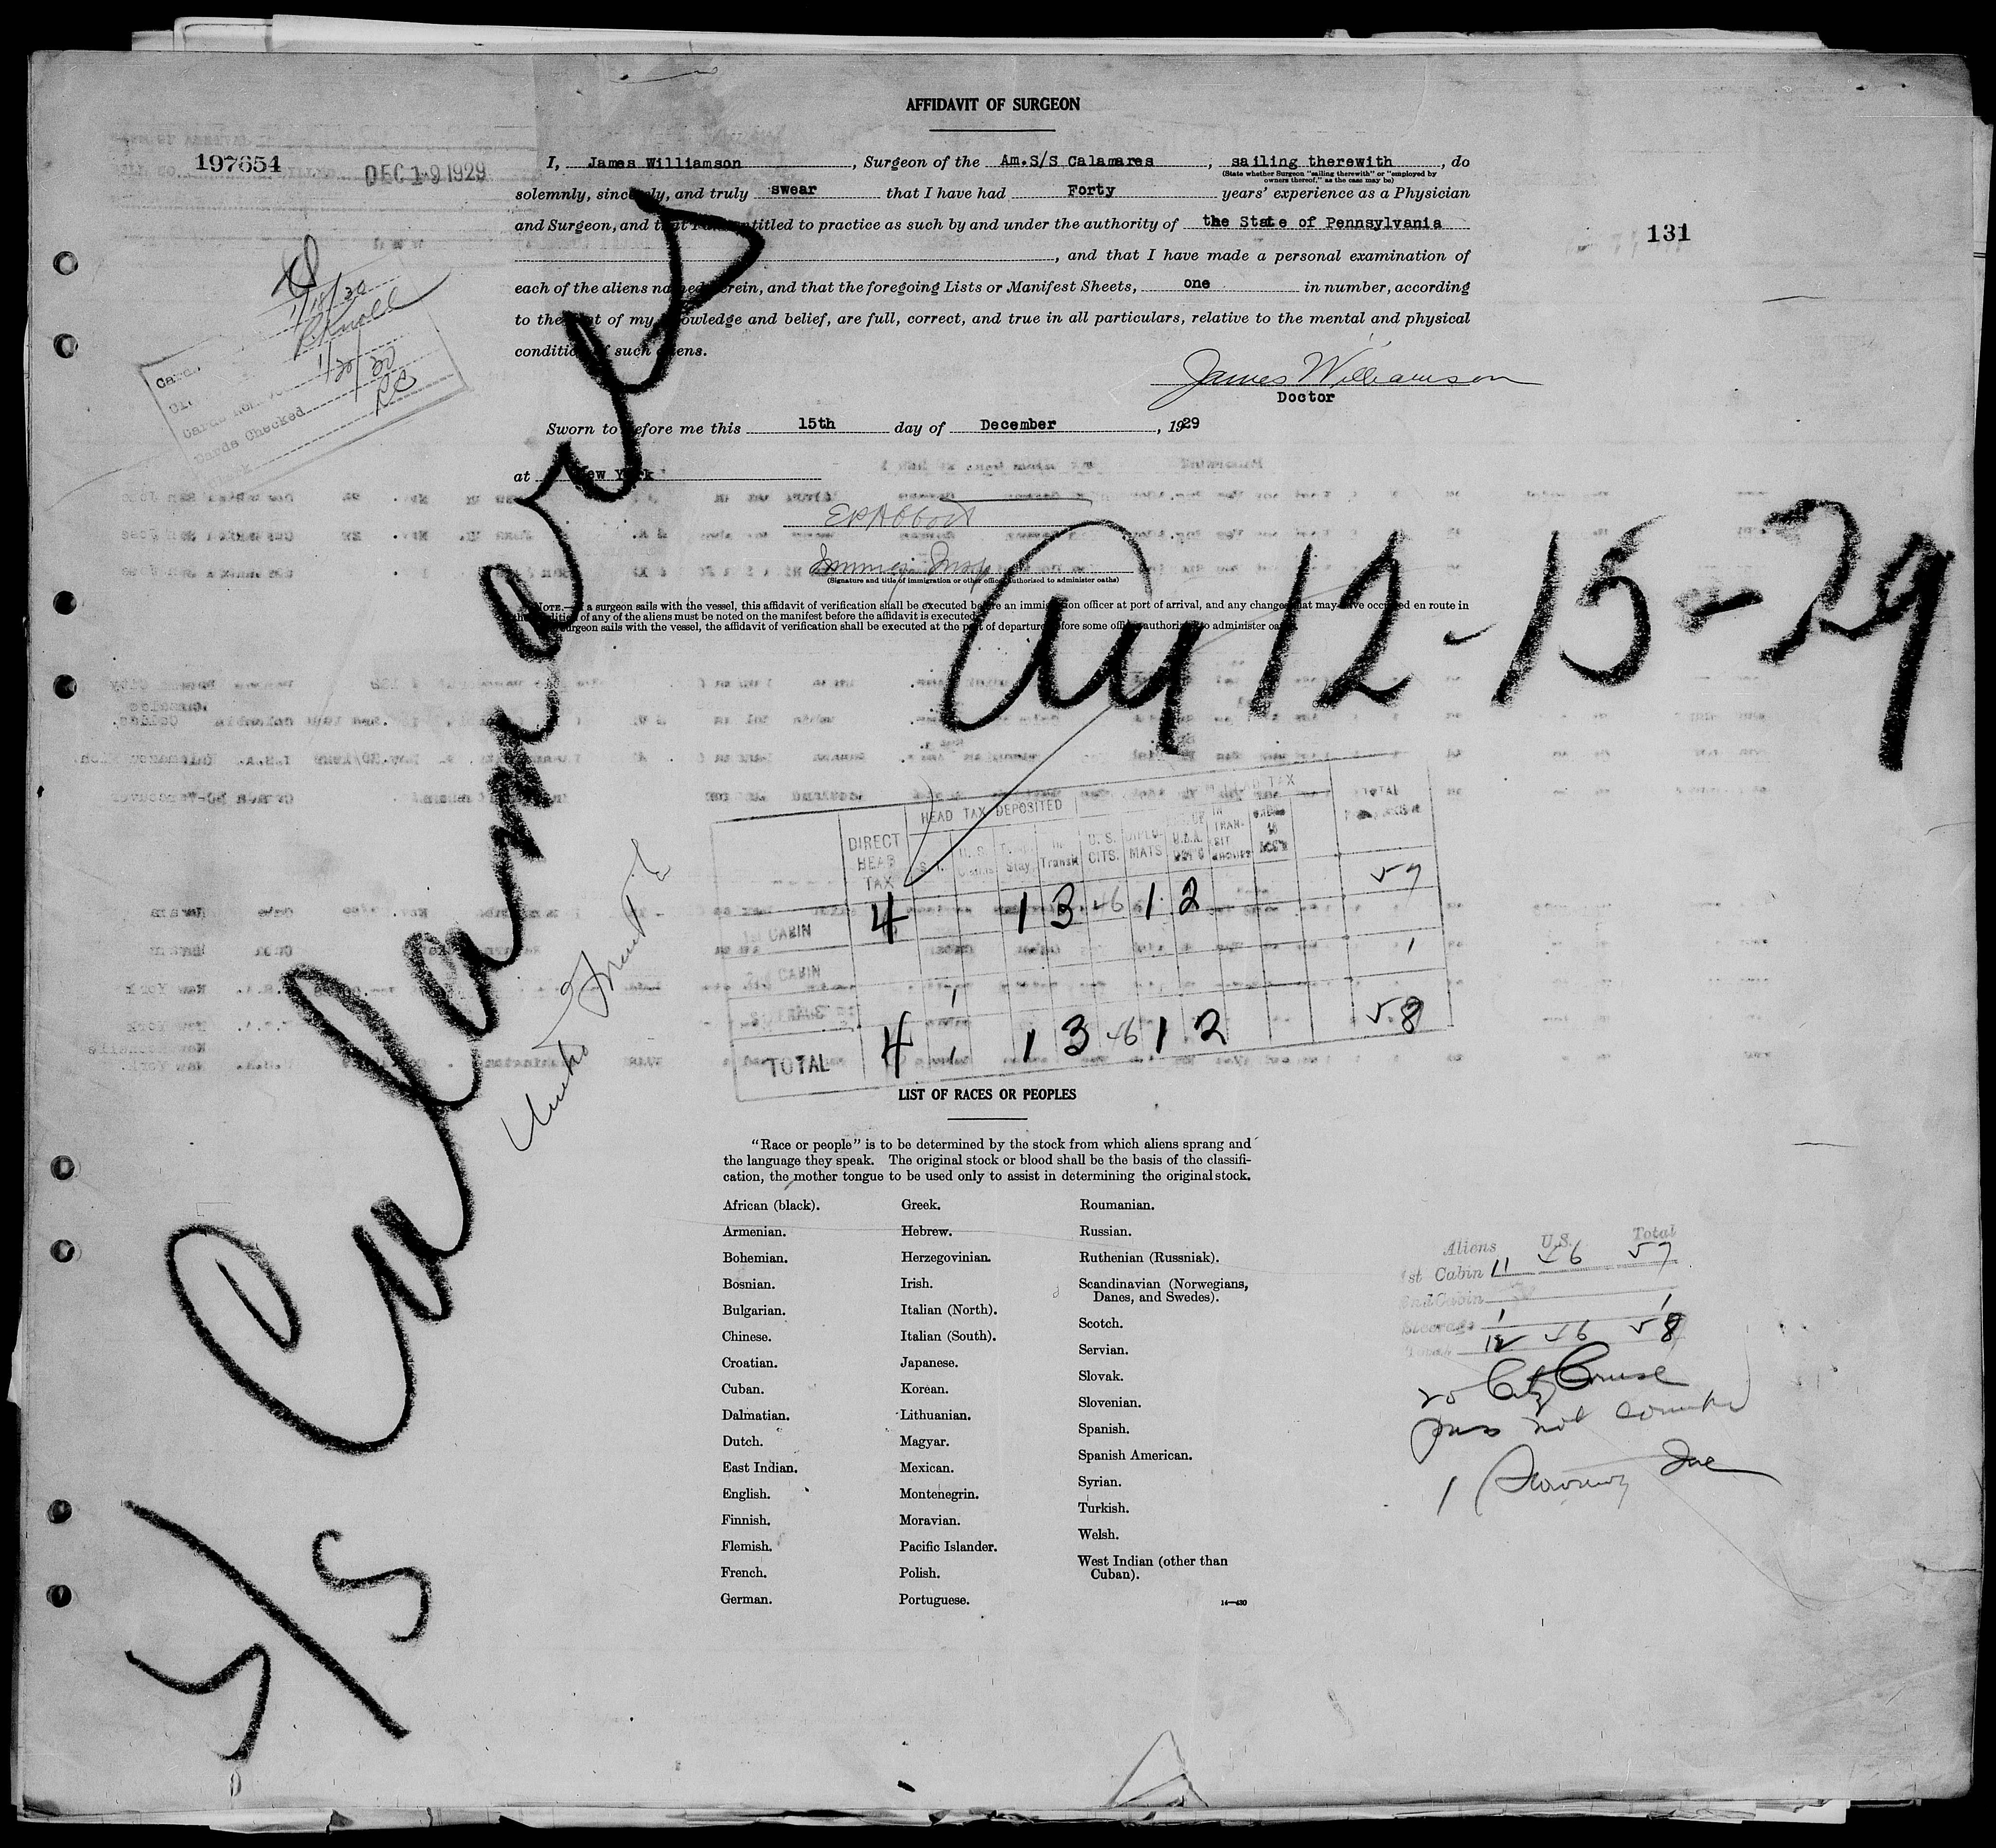 AFFIDAVIT OF SURGEON
197654
DEC 19 1929
I, James Williamson, Surgeon of the Am.S/S Calamares, sailing therewith, do
(State whether Surgeon "sailing therewith" or "employed by
owners thereof," as the case may be)
solemnly, sincerely, and truly swear that I have had Forty years' experience as a Physician
and Surgeon, and that I am entitled to practice as such by and under the authority of the State of Pennsylvania
131
, and that I have made a personal examination of
each of the aliens named herein, and that the foregoing Lists or Manifest Sheets, one in number, according
to the best of my knowledge and belief, are full, correct, and true in all particulars, relative to the mental and physical
condition of such aliens.
James Williamson
Doctor
Cards Checked
Sworn to before me this 15th day of December, 1929
at New York
EPAbbott
Immig. Insp
(Signature and title of immigration or other officer authorized to administer oaths)
NOTE.—If a surgeon sails with the vessel, this affidavit of verification shall be executed before an immigration officer at port of arrival, and any changes that may have occurred en route in
the condition of any of the aliens must be noted on the manifest before the affidavit is executed.
surgeon sails with the vessel, the affidavit of verification shall be executed at the port of departure before some officer authorized to administer oaths.
S/S Calamares
12-15-29
United Fruit
HEAD TAX DEPOSITED
TOTAL
DIRECT HEAD TAX
In Transit
U.S. CITS.
DIPLOMATS
1st CABIN 4 1 3 46 1 2 57
2nd CABIN 1
1
TOTAL 4 1 1 3 46 1 2 58
LIST OF RACES OR PEOPLES
"Race or people" is to be determined by the stock from which aliens sprang and
the language they speak. The original stock or blood shall be the basis of the classifi-
cation, the mother tongue to be used only to assist in determining the original stock.
African (black).
Armenian.
Bohemian.
Bosnian.
Bulgarian.
Chinese.
Croatian.
Cuban.
Dalmatian.
Dutch.
East Indian.
English.
Finnish.
Flemish.
French.
German.
Greek.
Hebrew.
Herzegovinian.
Irish.
Italian (North).
Italian (South).
Japanese.
Korean.
Lithuanian.
Magyar.
Mexican.
Montenegrin.
Moravian.
Pacific Islander.
Polish.
Portuguese.
Roumanian.
Russian.
Ruthenian (Russniak).
Scandinavian (Norwegians,
Danes, and Swedes).
Scotch.
Servian.
Slovak.
Slovenian.
Spanish.
Spanish American.
Syrian.
Turkish.
Welsh.
West Indian (other than
Cuban).
14—430
Aliens U.S. Total
1st Cabin 11 46 57
2nd Cabin
Steerage 1 1
Total 12 46 58
Cruise
pass not counted
1